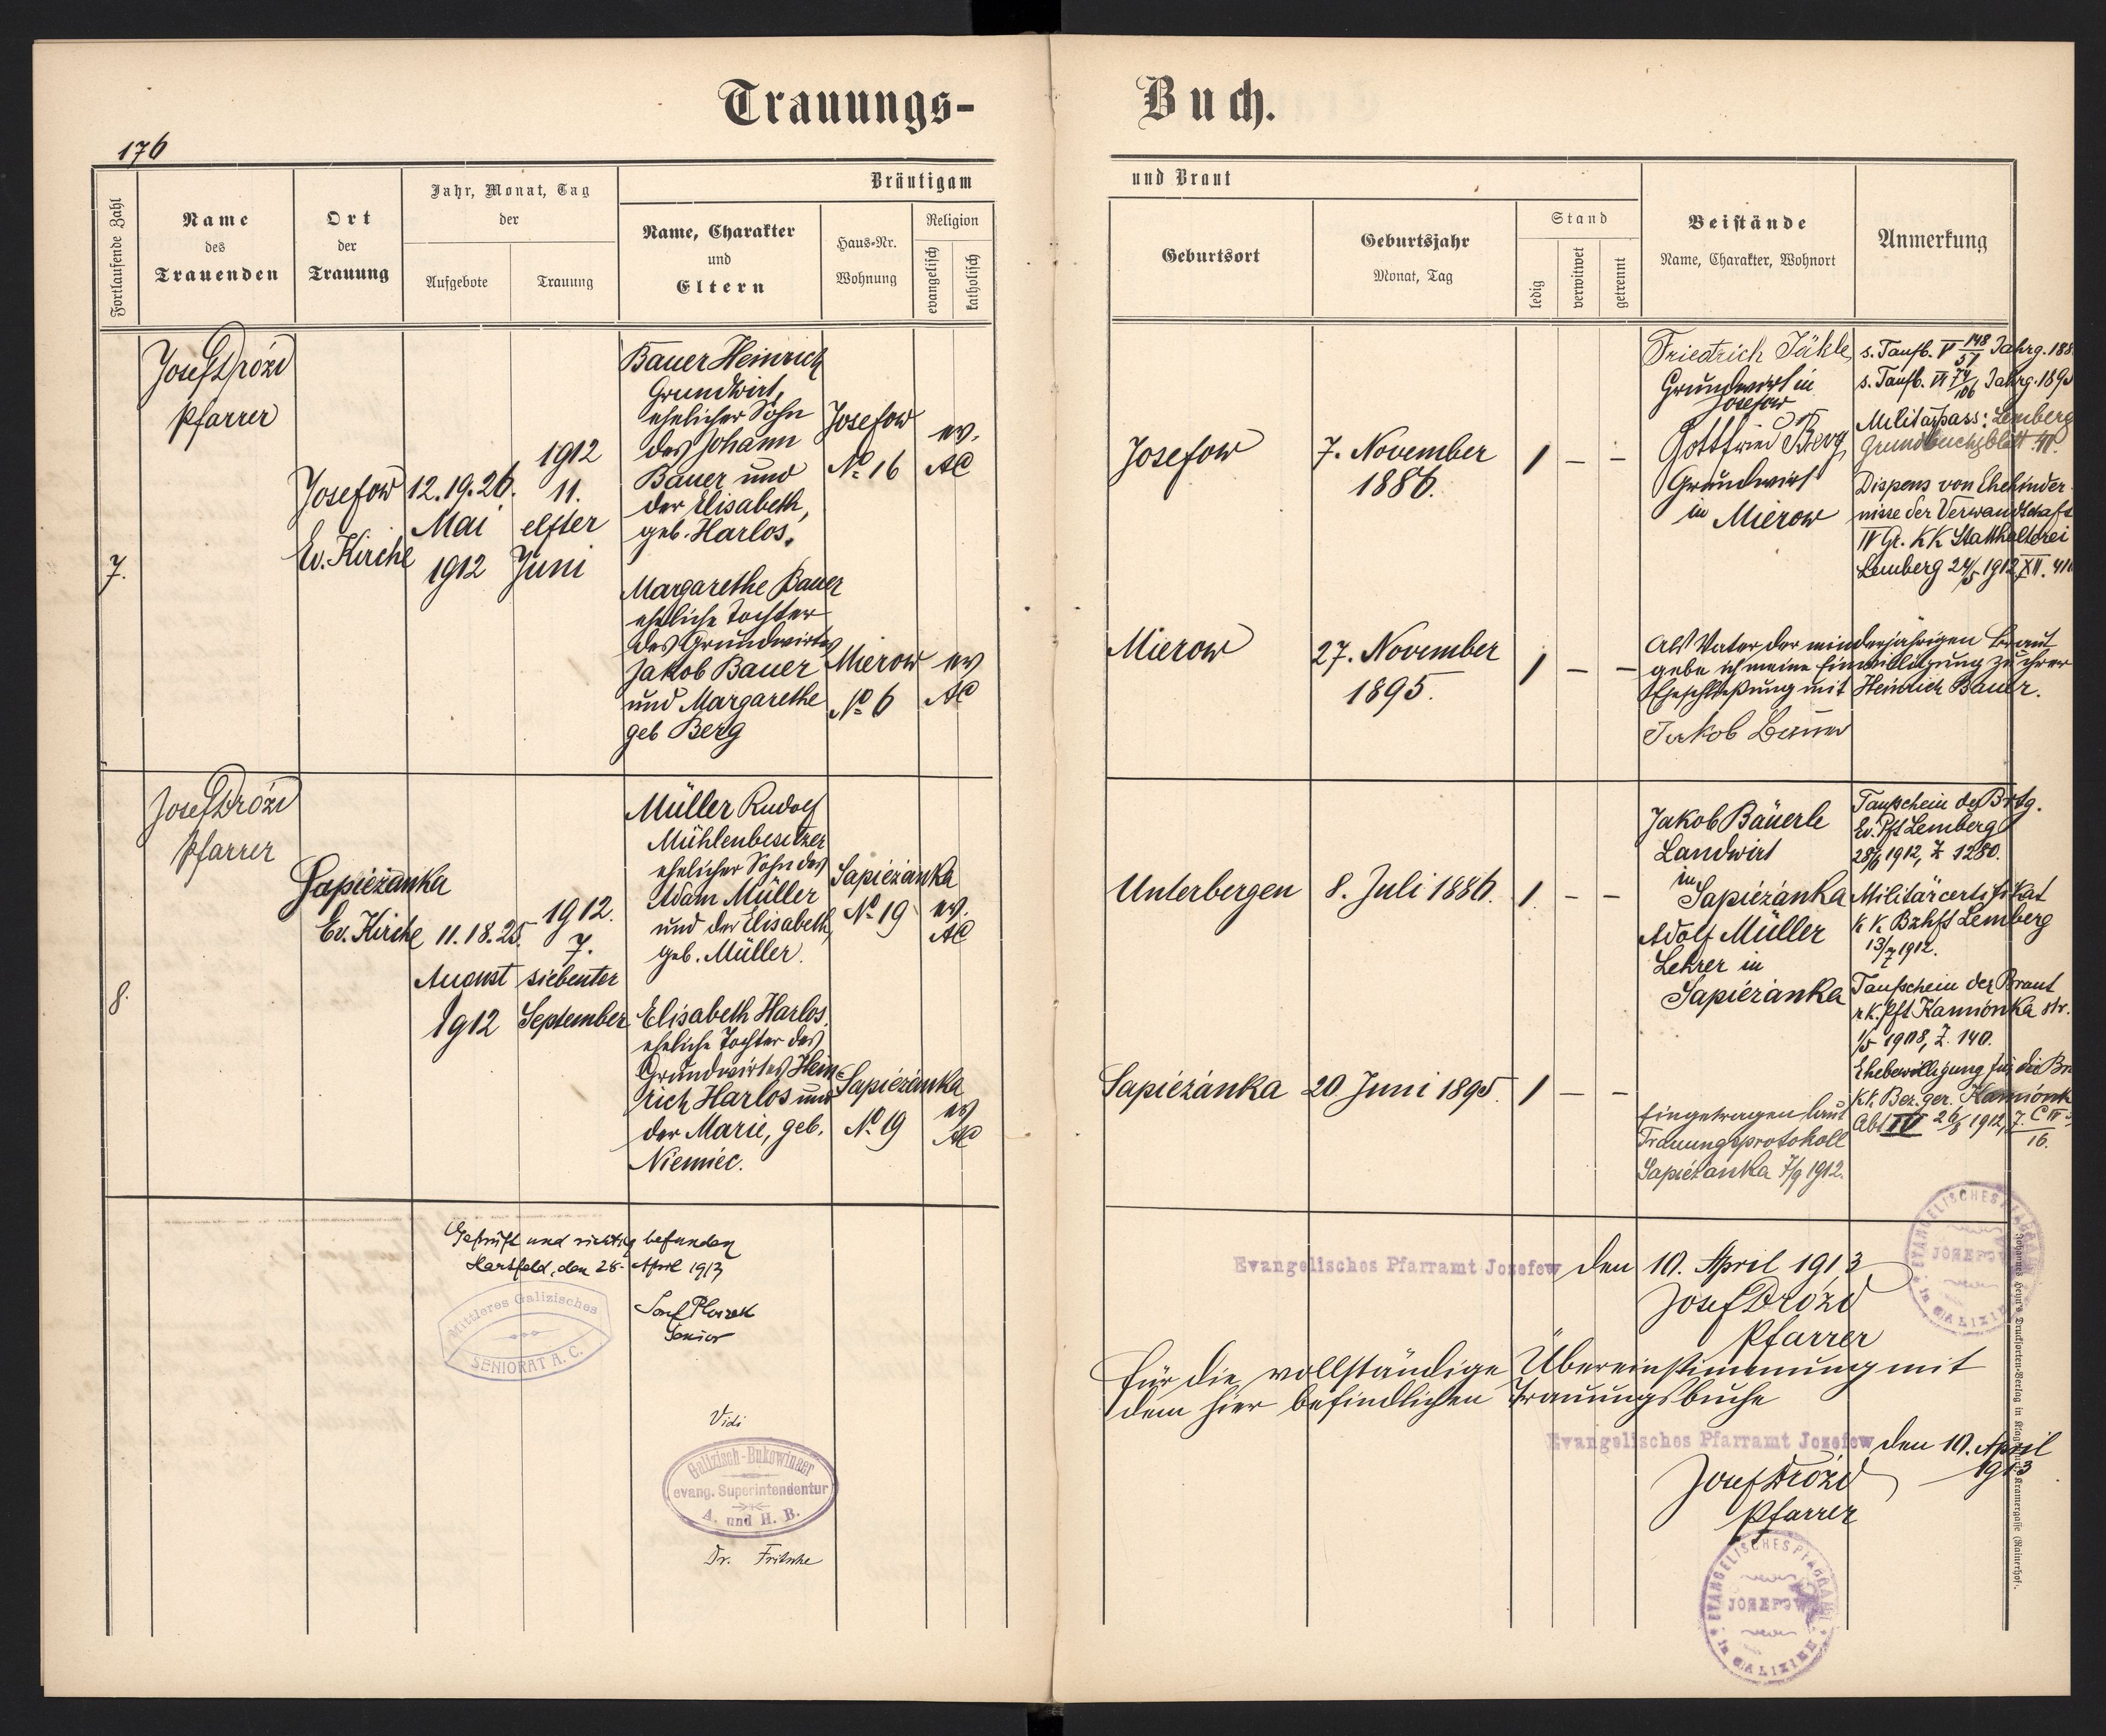 Trauungs-
Buch.
176
Fortlaufende Zahl
Name
des
Trauenden
Ort
der
Trauung
Jahr, Monat, Tag
der
Aufgebote
Trauung
Bräutigam
Name, Charakter
und
Eltern
Haus-Nr.
Wohnung
Religion
evangelisch
katholisch
und Braut
Geburtsort
Geburtsjahr
Monat, Tag
Stand
ledig
verwitwet
getrennt
Beistände
Name, Charakter, Wohnort
Anmerkung
7.
Josef Drózd
Pfarrer
Josefow
Ev. Kirche
12. 19. 26.
Mai
1912
1912
11.
elfter
Juni
Bauer Heinrich
Grundwirt,
ehelicher Sohn
des Johann
Bauer und
der Elisabeth,
geb. Harlos.
Josefow
No 16
ev.
AC
Margarethe Bauer
eheliche Tochter
des Grundwirtes
Jakob Bauer
und Margarethe
geb Berg
Mierow
No 6
ev
AC
Josefow
7. November
1886.
1 – –
Friedrich Jäkle,
Grundwirt in
Josefow
Gottfried Berg
Grundwirt
in Mierow
s. Taufb. V 148/57 Jahrg. 188
s. Taufb. VI 74/106 Jahrg. 1895
Militärpass: Lemberg
Grundbuchsblatt
Dispens von Ehehinder-
nisse der Verwandtschaft
IV Gr. KK Statthalterei
Lemberg 24/5 1912, XII.
Mierow
27. November
1895.
1 – –
Als Vater der minderjährigen Braut
gebe ich meine Einwilligung zu ihrer
Eheschließung mit Heinrich Bauer.
Jakob Bauer
8.
Josef Drózd
Pfarrer
Sapieżanka
Ev. Kirche
11. 18. 25.
August
1912
1912.
7.
siebenter
September
Müller Rudolf
Mühlenbesitzer
ehelicher Sohn des
Adam Müller
und der Elisabeth,
geb. Müller.
Sapieżanka
No 19
ev.
AC
Elisabeth Harlos,
eheliche Tochter des
Grundwirtes Hein-
rich Harlos und
der Marie, geb.
Niemiec.
Sapieżanka
No 19
ev
AC
Unterbergen
8. Juli 1886.
1 – –
Jakob Bäuerle
Landwirt
in
Sapieżanka
Adolf Müller
Lehrer in
Sapieżanka
Taufschein des Brtg.
Ev. Pft Lemberg
28/6 1912, Z 1280.
Militärcertifikat
k k Bzhft Lemberg
13/7 1912.
Taufschein der Braut
r.k. Pft Kamionka str.
1/5 1908, Z. 140.
Ehebewilligung für die Br
k k Bez. ger. Kamionk
Abt IV 26/8 1912,
16.
Sapieżanka
20 Juni 1895.
1 – –
Eingetragen laut
Trauungsprotokoll
Sapieżanka 7/9 1912.
Geprüft und richtig befunden
Hartfeld, den 28. April 1913
Mittleres Galizisches
SENIORAT A. C.
Senior
Vidi
Galizisch-Bukowinaer
evang. Superintendentur
A. und H. B.
Dr. Fritsche
Evangelisches Pfarramt Josefow den 10. April 1913
Josef Drózd
Pfarrer
EVANGELISCHES PFARRAMT
JOZEFOW
in GALIZIEN
Für die vollständige Übereinstimmung mit
dem hier befindlichen Trauungsbuche
Evangelisches Pfarramt Jozefow den 10. April
1913
Josef Drózd
Pfarrer
EVANGELISCHES PFARRAMT
JOZEFOW
in GALIZIEN